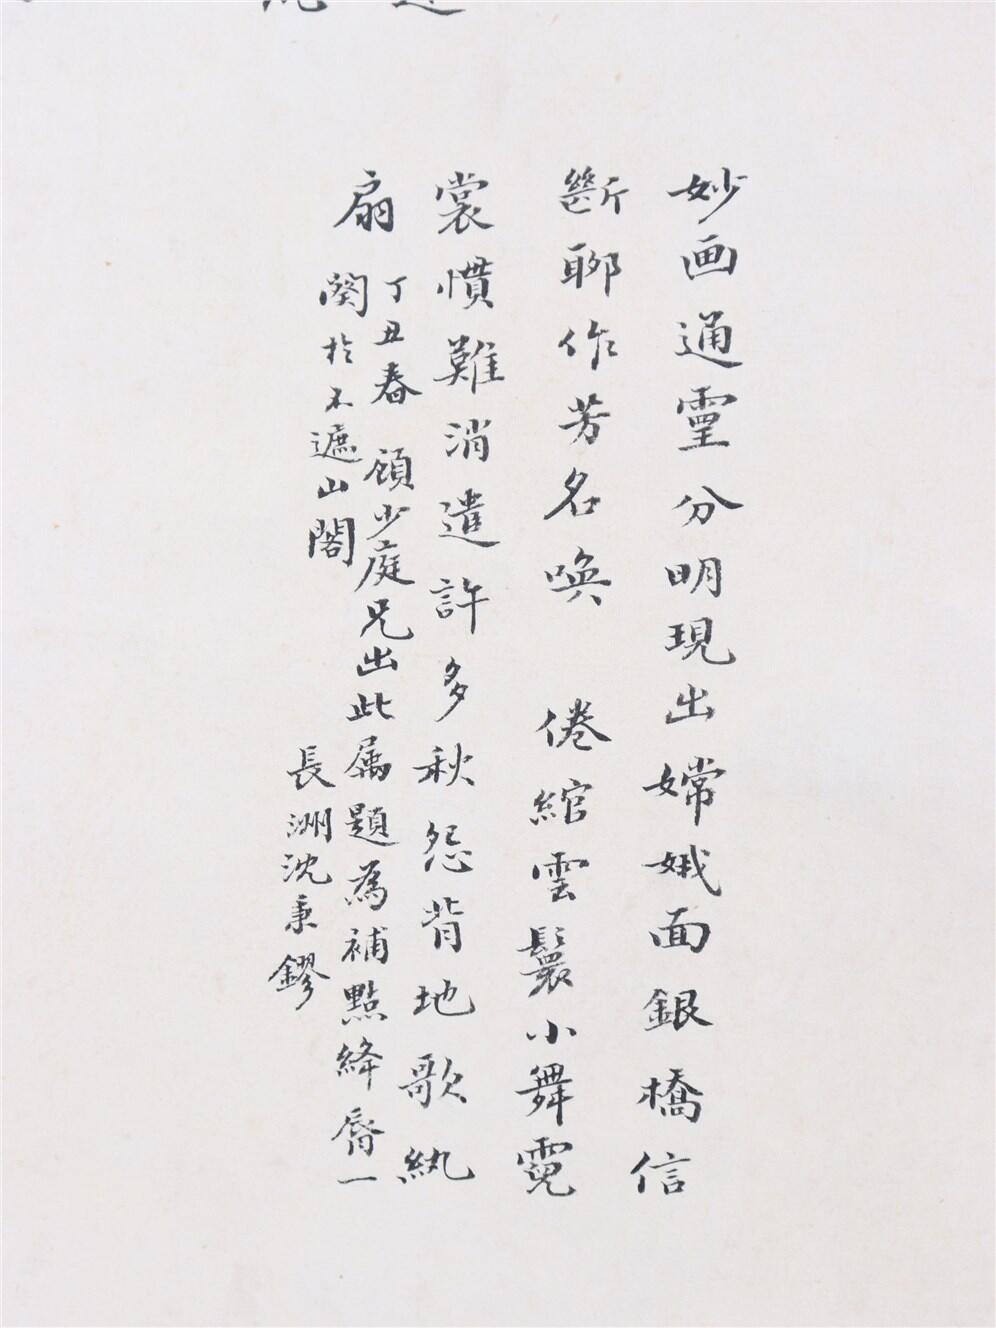 妙画通靈分明現出嫦娥面銀橋信
斷聊作芳名喚 倦綰雲鬟小舞霓
裳慣難消遣許多秋怨背地歌紈
扇 丁丑春 頋少庭兄出此属題為補點絳唇一
闋於不遮山閣
長洲沈秉鏐